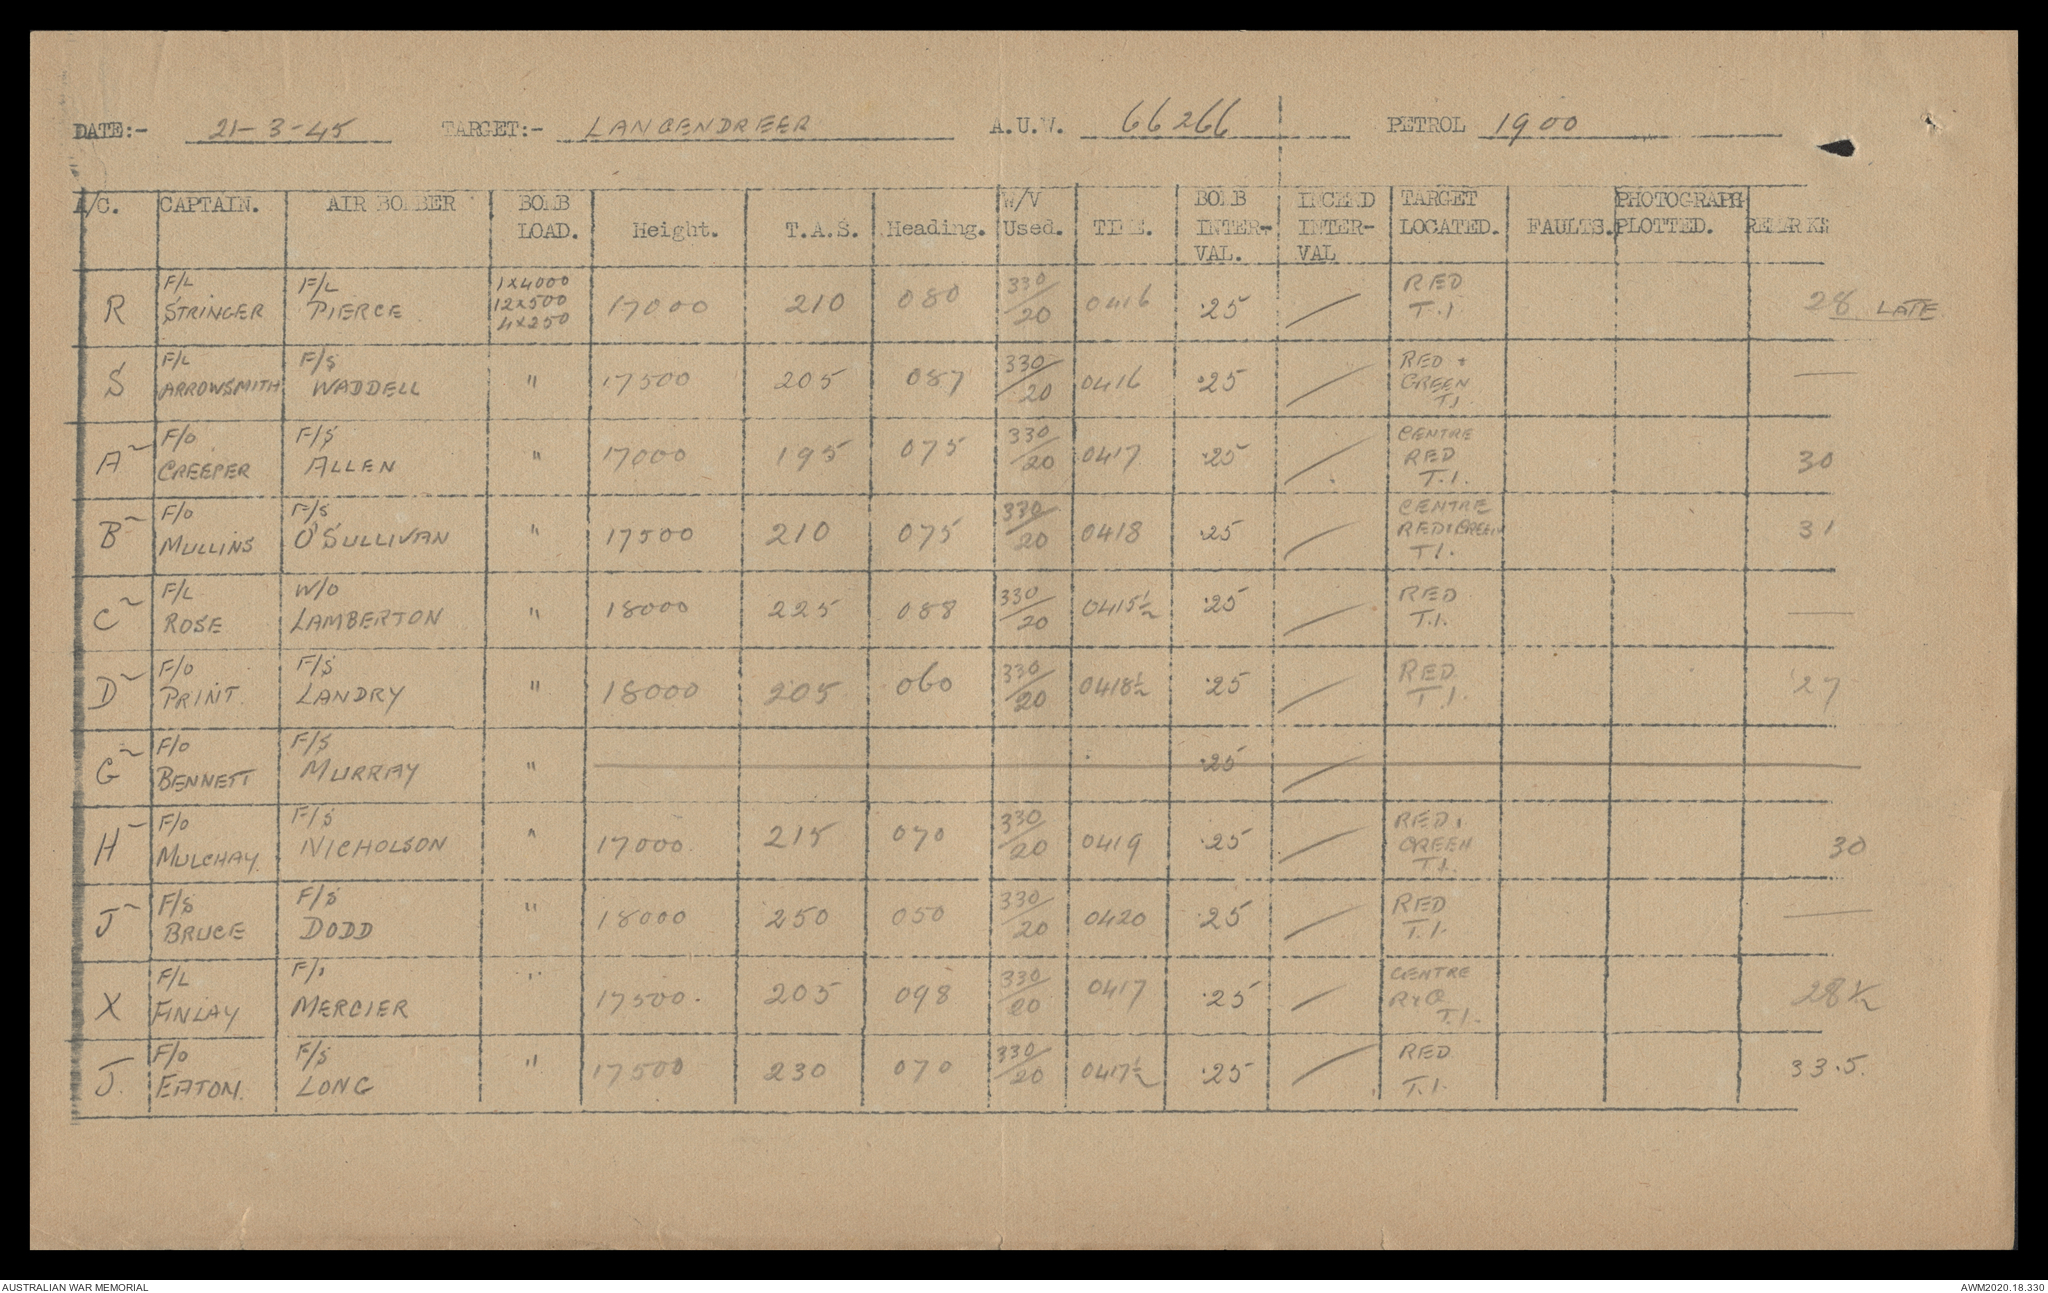 DATE:- 21-3-45 TARGET:- LANGENDREER A.U.W. 66266 PETROL 1900
A/C. CAPTAIN. AIR BOMBER BOMB LOAD. Height. T.A.S. Heading. W/V Used. TIME. BOMB INTER-VAL. INCEND INTER-VAL TARGET LOCATED. FAULTS. PHOTOGRAPH PLOTTED. REMARKS
R F/L STRINGER F/L PIERCE 1x4000 12x500 4x250 17000 210 080 330/20 0416 .25 / RED T.I 28 LATE
S F/L ARROWSMITH F/S WADDELL " 17500 205 087 330/20 0416 .25 / RED + GREEN T.I —
A~ F/O CREEPER F/S ALLEN " 17000 195 075 330/20 0417 .25 / CENTRE RED T.I. 30
B~ F/O MULLINS F/S O'SULLIVAN " 17500 210 075 330/20 0418 .25 / CENTRE RED+GREEN T.I. 31
C~ F/L ROSE W/O LAMBERTON " 18000 225 088 330/20 0415½ .25 / RED T.I. —
D~ F/O PRINT. F/S LANDRY " 18000 205 060 330/20 0418½ .25 / RED T.I. 27
G~ F/O BENNETT F/S MURRAY " — .25 /
H~ F/O MULCHAY. F/S NICHOLSON " 17000. 215 070 330/20 0419 .25 / RED+ GREEN T.I. 30
J~ F/S BRUCE F/S DODD " 18000 250 050 330/20 0420 .25 / RED T.I. —
X F/L FINLAY MERCIER " 17500. 205 098 330/20 0417 .25 / CENTRE T.I. 28½
J. F/O EATON. F/S LONG " 17500 230 070 330/20 0417½ .25 / RED T.I. 33.5.
AUSTRALIAN WAR MEMORIAL AWM2020.18.330